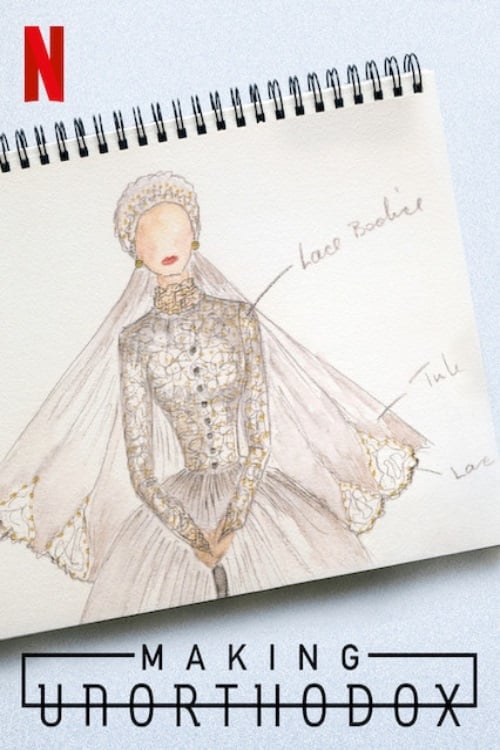 N
Lace Bodice
Tule
Lace
MAKING
UNORTHODOX